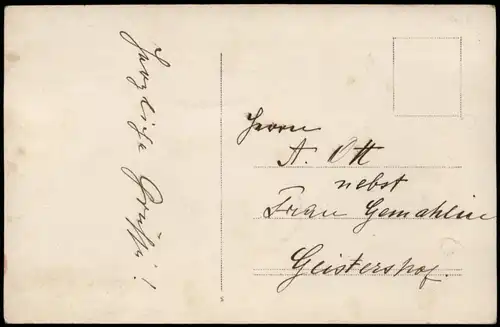 Herzliche Grüße!
Herrn
A. Ott
nebst
Frau Gemahlin
Geistershof.